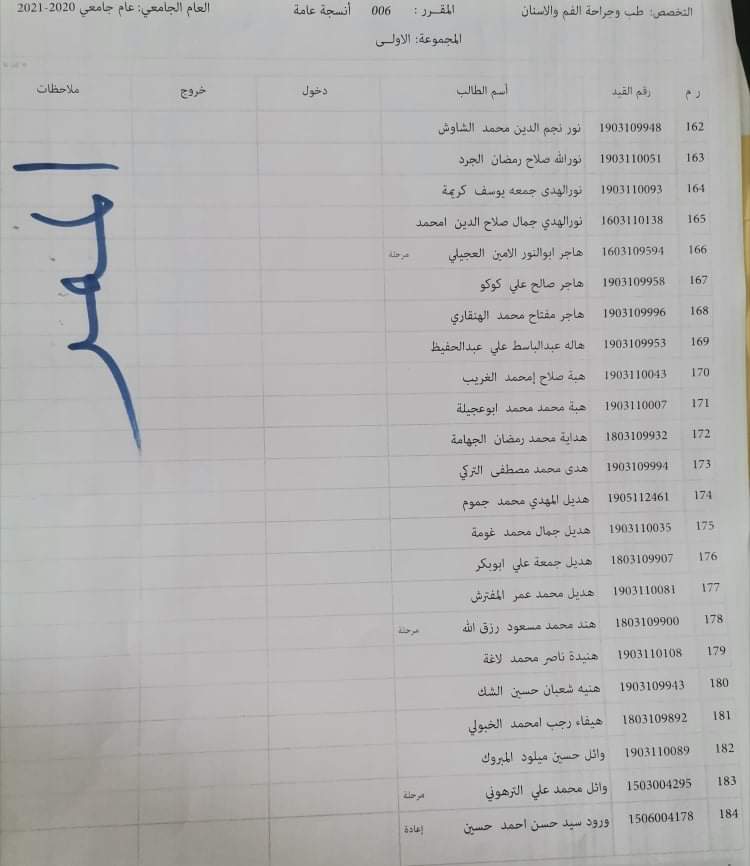 التخصص: طب وجراحة الفم والاسنان المقـــرر : 006 أنسجة عامة العام الجامعي: عام جامعي 2020-2021
المجموعة: الاولــى
ر م رقم القيد أسم الطالب دخول خروج ملاحظات
162 1903109948 نور نجم الدين محمد الشاوش
163 1903110051 نورالله صلاح رمضان الجرد
164 1903110093 نورالهدى جمعه يوسف كريمة
165 1603110138 نورالهدي جمال صلاح الدين امحمد
166 1603109594 هاجر ابوالنور الامين العجيلي مرحلة
167 1903109958 هاجر صالح علي كوكو
168 1903109996 هاجر مفتاح محمد الهنقاري
169 1903109953 هاله عبدالباسط علي عبدالحفيظ
170 1903110043 هبة صلاح إمحمد الغريب
171 1903110007 هبة محمد محمد ابوعجيلة
172 1803109932 هداية محمد رمضان الجهامة
173 1903109994 هدى محمد مصطفى التركي
174 1905112461 هديل المهدي محمد جموم
175 1903110035 هديل جمال محمد غومة
176 1803109907 هديل جمعة علي ابوبكر
177 1903110081 هديل محمد عمر المفترش
178 1803109900 هند محمد مسعود رزق الله مرحلة
179 1903110108 هنيدة ناصر محمد لاغة
180 1903109943 هنيه شعبان حسين الشك
181 1803109892 هيفاء رجب امحمد الخبولي
182 1903110089 وائل حسين ميلود المبروك
183 1503004295 وائل محمد علي الترهوني مرحلة
184 1506004178 ورود سيد حسن احمد حسين إعادة